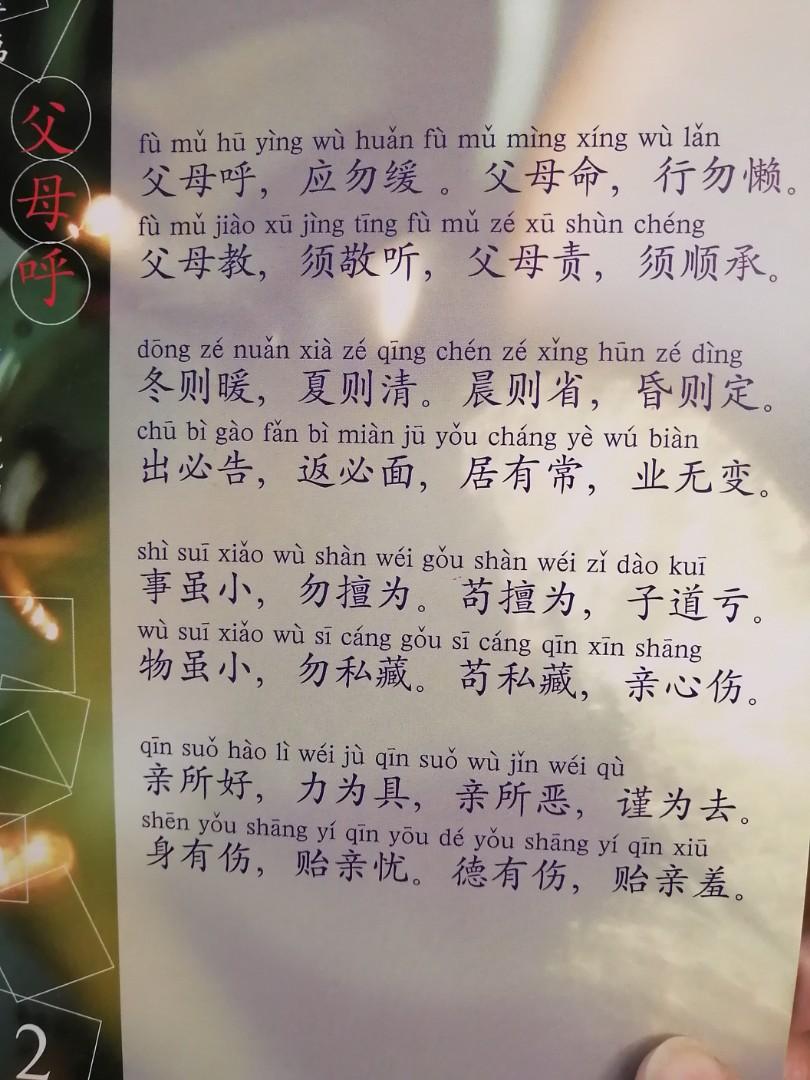 父母呼
fù mǔ hū yìng wù huǎn fù mǔ mìng xíng wù lǎn
父母呼，应勿缓。父母命，行勿懒。
fù mǔ jiào xū jìng tīng fù mǔ zé xū shùn chéng
父母教，须敬听，父母责，须顺承。
dōng zé nuǎn xià zé qīng chén zé xǐng hūn zé dìng
冬则暖，夏则清。晨则省，昏则定。
chū bì gào fǎn bì miàn jū yǒu cháng yè wú biàn
出必告，返必面，居有常，业无变。
shì suī xiǎo wù shàn wéi gǒu shàn wéi zǐ dào kuī
事虽小，勿擅为。苟擅为，子道亏。
wù suī xiǎo wù sī cáng gǒu sī cáng qīn xīn shāng
物虽小，勿私藏。苟私藏，亲心伤。
qīn suǒ hào lì wéi jù qīn suǒ wù jǐn wéi qù
亲所好，力为具，亲所恶，谨为去。
shēn yǒu shāng yí qīn yōu dé yǒu shāng yí qīn xiū
身有伤，贻亲忧。德有伤，贻亲羞。
2